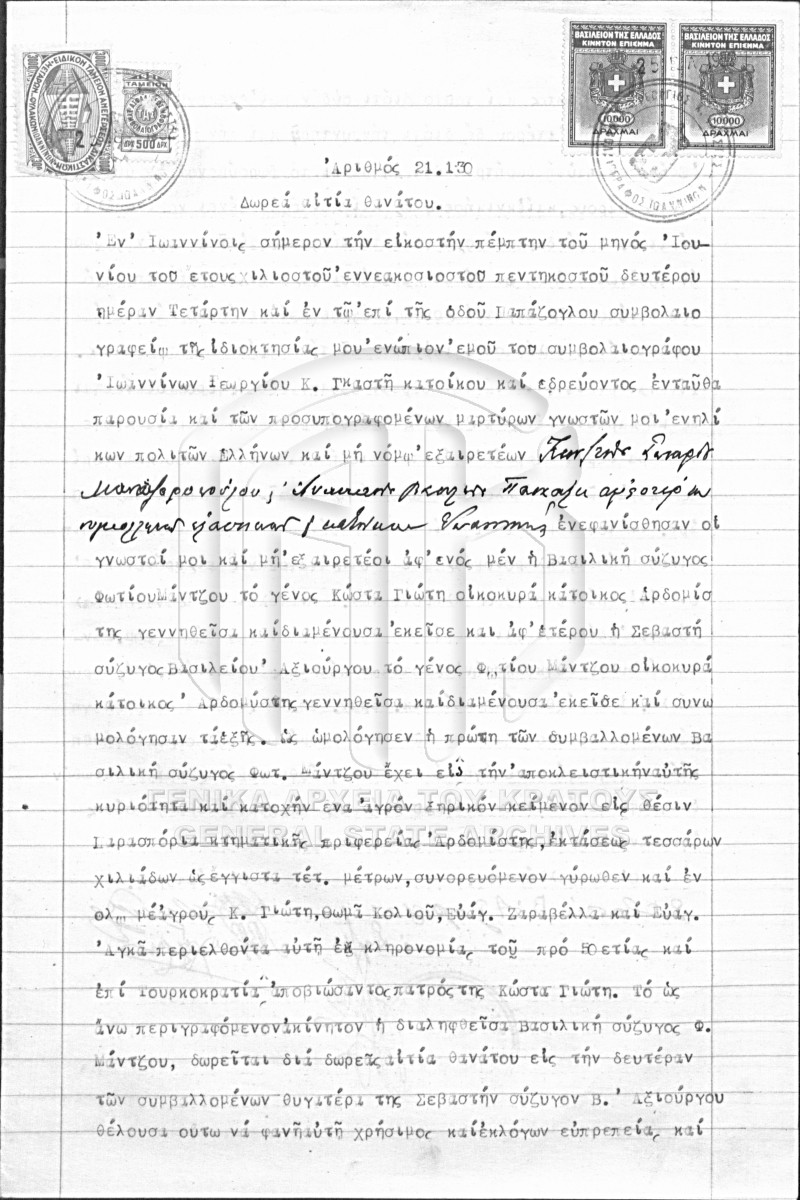 ΒΑΣΙΛΕΙΟΝ ΤΗΣ ΕΛΛΑΔΟΣ
ΚΙΝΗΤΟΝ ΕΠΙΣΗΜΑ
10000
ΔΡΑΧΜΑΙ
ΒΑΣΙΛΕΙΟΝ ΤΗΣ ΕΛΛΑΔΟΣ
ΚΙΝΗΤΟΝ ΕΠΙΣΗΜΑ
10000
ΔΡΑΧΜΑΙ
ΤΑΜΕΙΟΝ
500 ΔΡΧ
Ἀριθμός 21.130
Δωρεά αἰτία θανάτου.
Ἐν' Ἰωαννίνοις σήμερον τήν εἰκοστήν πέμπτην τοῦ μηνός Ἰου-
νίου του ετους χιλιοστοῦ'εννεακοσιοστοῦ πεντηκοστοῦ δευτέρου
ημέραν Τετάρτην καί ἐν τῷ'επί τῆς ὁδοῦ Παπάζογλου συμβολαιο
γραφείῳ τῆς ἰδιοκτησίας μου'ενώπιον'εμοῦ του συμβολαιογράφου
Ἰωαννίνων Γεωργίου Κ. Γκαστῆ κατοίκου καί εδρεύοντος ἐνταῦθα
παρουσία καί τῶν προσυπογραφομένων μαρτύρων γνωστῶν μοι'ενηλί
κων πολιτῶν Ελλήνων καί μή νόμῳ'εξαιρετέων
ἐνεφανίσθησαν οἱ
γνωστοί μοι καί μή'εξαιρετέοι ἀφ'ενός μέν ἡ Βασιλική σύζυγος
ΦωτίουΜάντζου τό γένος Κώστα Γιώτη οἰκοκυρά κάτοικος Αρδομίσ
της γεννηθεῖσα καίδιαμένουσα'εκεῖσε και ἀφ'ετέρου ἡ Σεβαστή
σύζυγοςΒασιλείου' Αξιούργου τό γένος Φωτίου Μάντζου οἰκοκυρά
κάτοικος' Αρδομύστης γεννηθεῖσα καίδιαμένουσα'εκεῖσε καί συνω
μολόγησαν τάἑξῆς. Ὡς ὡμολόγησεν ἡ πρώτη τῶν συμβαλλομένων Βα
σιλική σύζυγος Φωτ. Μάντζου ἔχει εἰς τήν'αποκλειστικήναὐτῆς
κυριότητα καί κατοχήν ενα ἀγρόν ξηρικόν κείμενον εἰς θέσιν
Παρασπόρια κτηματικῆς πριφερείας Ἀρδομίστης,ἐκτάσεως τεσσάρων
χιλιάδων ὡςεγγιστα τέτ. μέτρων,συνορευόμενον γύρωθεν καί ἐν
ὁλῳ μέἀγρούς Κ. Γιώτη,Θωμᾶ Κολιοῦ,Εὐάγ. Ζαραβέλλα καί Εὐάγ.
Ἀγκᾶ περιελθόντα αὐτῇ ἐκ κληρονομίας τοῦ πρό 50ετίας καί
ἐπί Τουρκοκρατίας ἀποβιώσαντοςπατρός της Κώστα Γιώτη. Τό ὡς
ἄνω περιγραφόμενονἀκίνητον ἡ διαληφθεῖσα Βασιλική σύζυγος Φ.
Μάντζου, δωρεῖται διά δωρεᾶςαἰτία θανάτου εἰς τήν δευτέραν
τῶν συμβαλλομένων θυγατέρα της Σεβαστήν σύζυγον Β.' Αξιούργου
θέλουσα ουτω νά φανῇαὐτῇ χρήσιμος καίἐκλόγων εὐπρεπείας καί
ΓΕΝΙΚΑ ΑΡΧΕΙΑ ΤΟΥ ΚΡΑΤΟΥΣ
GENERAL STATE ARCHIVES